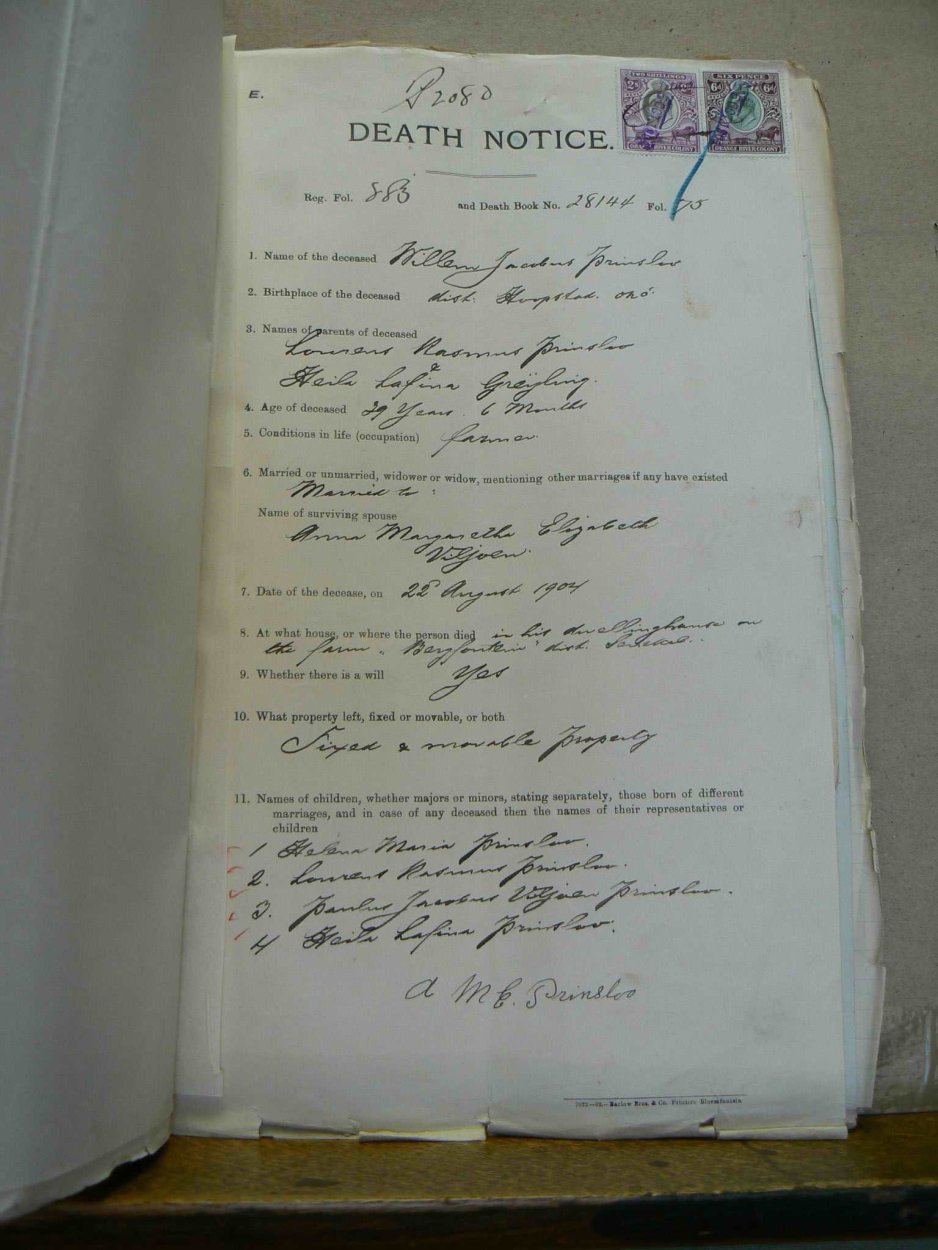 E.
P 2080
TWO SHILLINGS
2s
ORANGE RIVER COLONY
SIX PENCE
6d 6d
ORANGE RIVER COLONY
DEATH NOTICE.
Reg. Fol. 883 and Death Book No. 28144 Fol. 75
1. Name of the deceased Willem Jacobus Prinsloo
2. Birthplace of the deceased dist. Hoopstad.
3. Names of parents of deceased
Lourens Rasmus Prinsloo
&
Heila Lafina Greyling.
4. Age of deceased 39 Years. 6 Months
5. Conditions in life (occupation) farmer.
6. Married or unmarried, widower or widow, mentioning other marriages if any have existed
Married to :
Name of surviving spouse
Anna Margaretha Elizabeth
Viljoen.
7. Date of the decease, on 22d August 1904
8. At what house, or where the person died in his dwellinghouse on
the farm "Bergfontein" dist. Senekal.
9. Whether there is a will Yes
10. What property left, fixed or movable, or both
Fixed & movable Property
11. Names of children, whether majors or minors, stating separately, those born of different
marriages, and in case of any deceased then the names of their representatives or
children
1 Helena Maria Prinsloo.
2. Lourens Rasmus Prinsloo.
3. Paulus Jacobus Viljoen Prinsloo.
4 Heila Lafina Prinsloo.
A M E. Prinsloo
Barlow Bros. & Co. Printers Bloemfontein